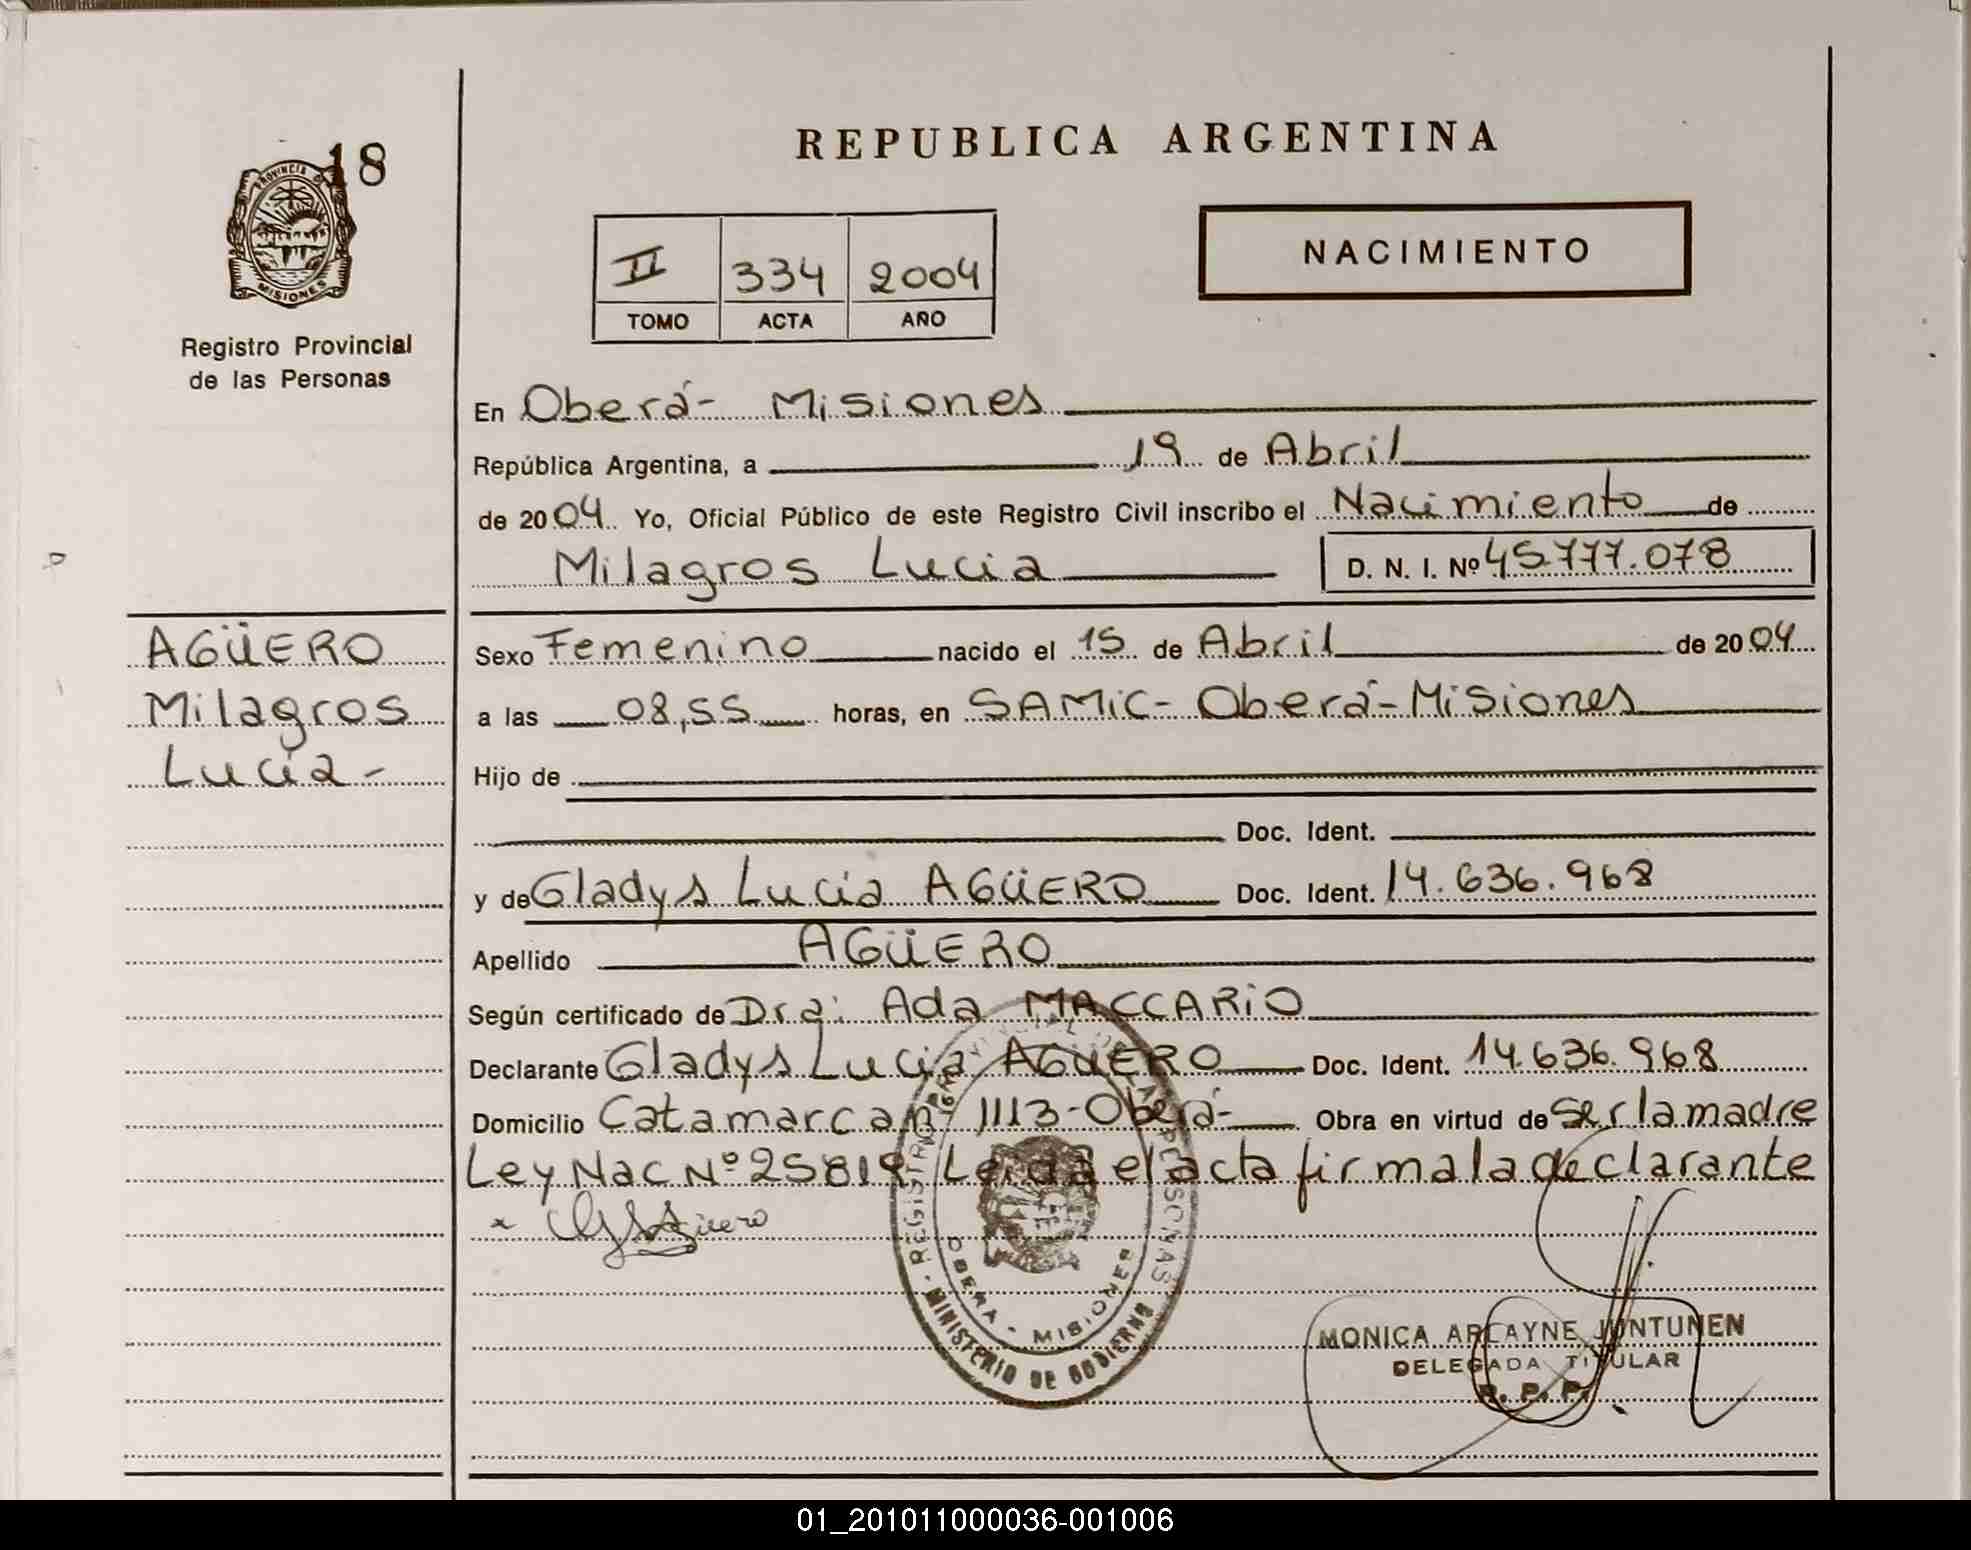 18
PROVINCIA D
MISIONES
Registro Provincial
de las Personas
AGÜERO
Milagros
Lucía-
REPUBLICA ARGENTINA
NACIMIENTO
II 334 2004
TOMO ACTA AÑO
En Oberá- Misiones
República Argentina, a 19 de Abril
de 2004 Yo, Oficial Público de este Registro Civil inscribo el Nacimiento de
Milagros Lucia D. N. I. Nº 45.777.078
Sexo Femenino nacido el 15 de Abril de 2004
a las 08,55 horas, en SAMIC- Oberá-Misiones
Hijo de
Doc. Ident.
y de Gladys Lucia AGÜERO Doc. Ident. 14.636.968
Apellido AGÜERO
Según certificado de Dra: Ada MACCARIO
Declarante Gladys Lucia AGUERO Doc. Ident. 14.636.968
Domicilio Catamarca nº 1113-Oberá- Obra en virtud de Ser la madre
Ley Nac Nº 25819 Leida el acta firma la declarante
REGISTRO PROVINCIAL DE LAS PERSONAS
OBERA - MISIONES
MINISTERIO DE GOBIERNO
MONICA ARLAYNE JUNTUNEN
DELEGADA TITULAR
R. P. P.
01_201011000036-001006